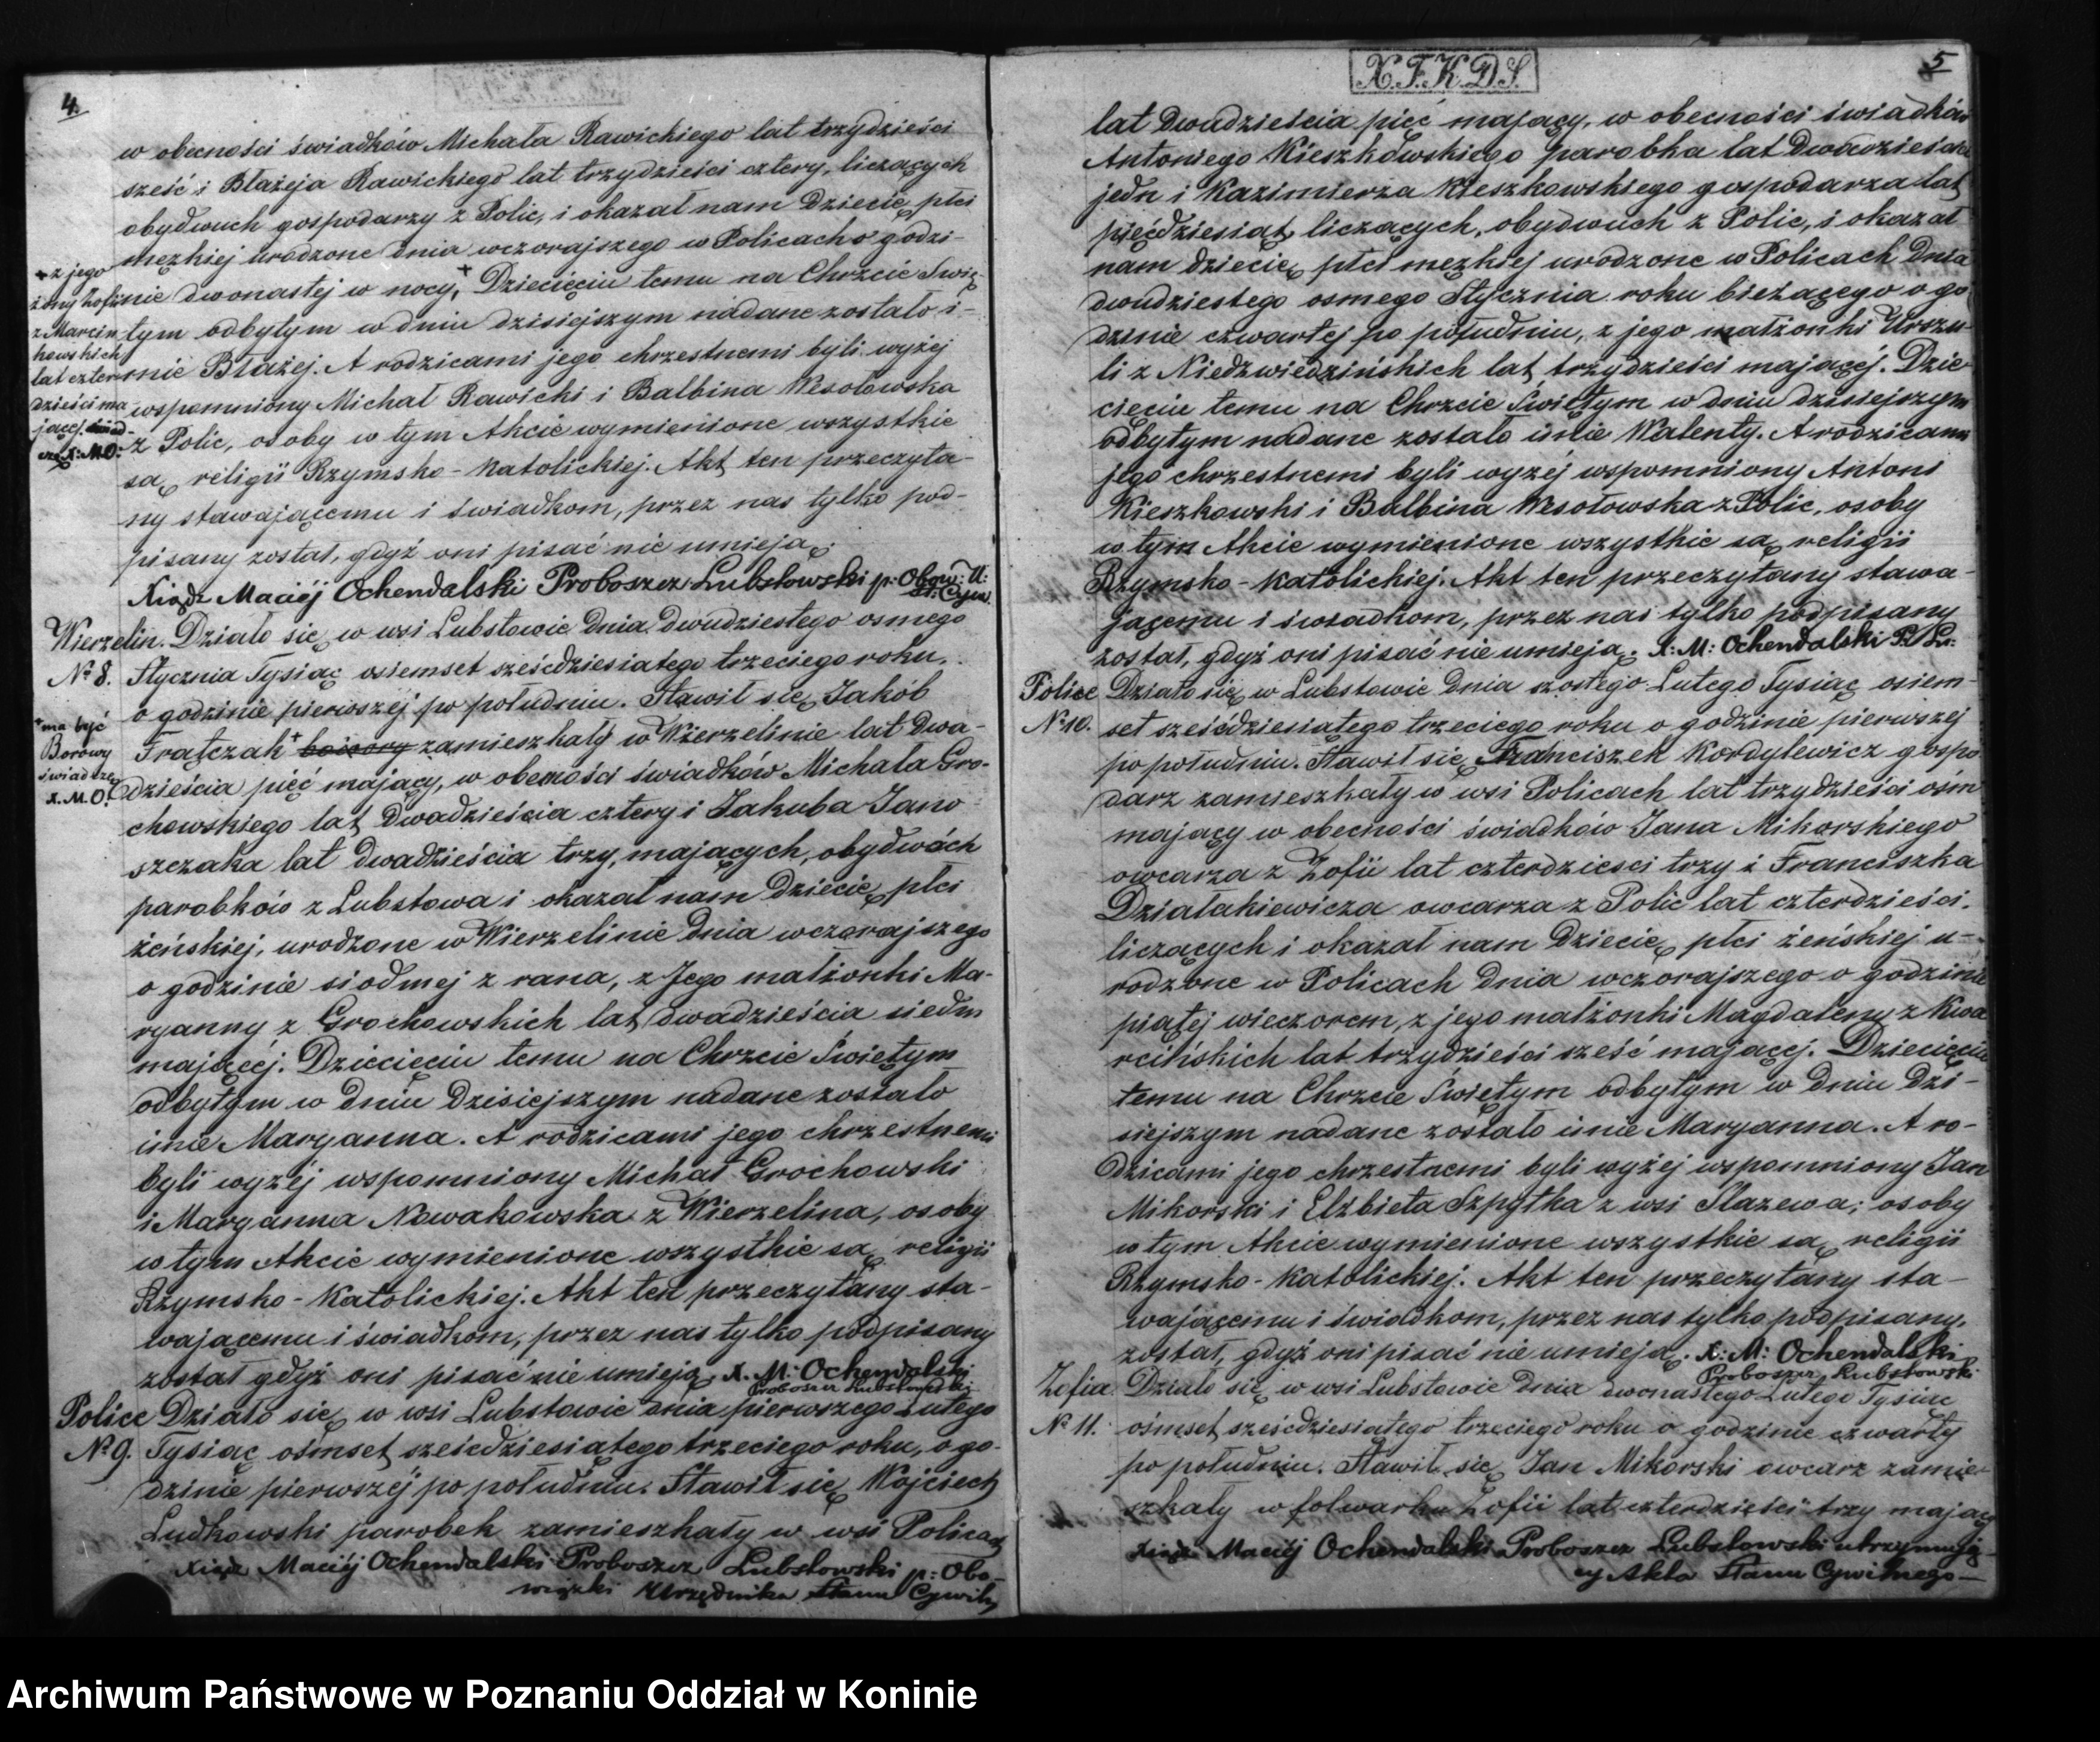 4.
w obecności świadków Michała Rawickiego lat trzydzieści
sześć i Błażeja Rawickiego lat trzydzieści cztery, liczących
obydwuch gospodarzy z Polic, i okazał nam Dziecię płci
męzkiej urodzone dnia wczorajszego w Policach o godzi-
nie dwonastej w nocy, + Dziecięciu temu na Chrzcie Świę-
tym odbytym w dniu dzisiejszym nadane zostało i-
mie Błażej. A rodzicami jego chrzestnemi byli wyżej
wspomniony Michał Rawicki i Balbina Wesołowska
z Polic, osoby w tym Akcie wymienione wszystkie
są religii Rzymsko-Katolickiej. Akt ten przeczyta-
ny stawającemu i świadkom, przez nas tylko pod-
pisany został, gdyż oni pisać nie umieją.
+ z jego
żony Zofii
z Marcin
kowskich
lat czter
dzieści ma
jącej
X: M O:
Xiądz Maciéj Ochendalski Proboszcz Lubstowski p: Obow: U:
St: Cywi:
Wierzelin. Działo się w wsi Lubstowie dnia dwudziestego osmego
No 8. Stycznia Tysiąc osiemset sześćdziesiątego trzeciego roku,
o godzinie pierwszéj po południu. Stawił się Jakób
Fratczak + zamieszkały w Wierzelinie lat dwa-
dzieścia pięć mający, w obecności świadków Michała Gro-
chowskiego lat dwadzieścia cztery i Jakuba Jano-
szczaka lat dwadzieścia trzy, mających, obydwóch
parobków z Lubstowa i okazał nam Dziecię płci
żeńskiej, urodzone w Wierzelinie dnia wczorajszego
o godzinie siodmej z rana, z Jego małżonki Ma-
ryanny z Grochowskich lat dwadzieścia siedm
mającéj. Dziecięciu temu na Chrzcie Świętym
odbytym w dniu dzisiejszym nadane zostało
imie Maryanna. A rodzicami jego chrzestnemi
byli wyżéj wspomniony Michał Grochowski
i Maryanna Nowakowska z Wierzelina, osoby
w tym Akcie wymienione wszystkie są religii
Rzymsko-Katolickiej. Akt ten przeczytany sta-
wającemu i świadkom, przez nas tylko podpisany
został gdyż oni pisać nie umieją. X. M: Ochendalski
Proboszcz Lubstowski
+ ma być
Borowy
świadczę
X. M. O.
Police Działo się w wsi Lubstowie dnia pierwszego Lutego
No 9. Tysiąc ośmset sześćdziesiątego trzeciego roku, o go-
dzinie pierwszéj po południu. Stawił się Wojciech
Ludkowski parobek zamieszkały w wsi Policach
Xiądz Maciéj Ochendalski Proboszcz Lubstowski p: Obo-
wiązki Urzędnika Stanu Cywiln
X.F.K.D.S.
5
lat dwudzieścia pięć mający, w obecności świadków
Antoniego Kieszkowskiego parobka lat dwadzieścia
jedn i Kazimierza Kieszkowskiego gospodarza lat
pięćdziesiąt liczących, obydwuch z Polic, i okazał
nam dziecię płci męzkiej urodzone w Policach dnia
dwudziestego osmego Stycznia roku bieżącego o go
dzinie czwartéj po południu, z jego małżonki Urszu-
li z Niedzwiedzińskich lat trzydzieści mającéj. Dzie-
cięciu temu na Chrzcie Świętym w dniu dzisiejszym
odbytym nadane zostało imie Walenty. A rodzicami
jego chrzestnemi byli wyżéj wspomniony Antoni
Kieszkowski i Balbina Wesołowska z Polic, osoby
w tym Akcie wymienione wszystkie są religii
Rzymsko-Katolickiej. Akt ten przeczytany stawa-
jącemu i świadkom, przez nas tylko podpisany
został, gdyż oni pisać nie umieją. X: M: Ochendalski P. Lu:
Police Działo się w Lubstowie dnia szostego Lutego Tysiąc osiem-
No 10. set sześćdziesiątego trzeciego roku o godzinie pierwszej
po południu. Stawił się Franciszek Kordylewicz gospo
darz zamieszkały w wsi Policach lat trzydzieści ośm
mający w obecności świadków Jana Mikorskiego
owcarza z Zofii lat czterdzieści trzy i Franciszka
Działakiewicza owcarza z Polic lat czterdzieści.
liczących i okazał nam Dziecię płci żeńskiej u-
rodzone w Policach dnia wczorajszego o godzinie
piątéj wieczorem, z jego małżonki Magdaleny z Kwa
rcińskich lat trzydzieści sześć mającej. Dziecięciu
temu na Chrzcie Świętym odbytym w dniu dzi-
siejszym nadane zostało imie Maryanna. A ro-
dzicami jego chrzestnemi byli wyżéj wspomniony Jan
Mikorski i Elżbieta Szpytka z wsi Slazewa; osoby
w tym Akcie wymienione wszystkie są religii
Rzymsko-Katolickiej. Akt ten przeczytany sta-
wającemu i świadkom, przez nas tylko podpisany,
został, gdyż oni pisać nie umieją. X: M: Ochendalski
Proboszcz Lubstowski
Zofia Działo się w wsi Lubstowie dnia dwonastego Lutego Tysiąc
No 11. ośmset sześćdziesiątego trzeciego roku o godzinie czwarty
po południu. Stawił się Jan Mikorski owcarz zamie-
szkały w folwarku Zofii lat czterdzieści trzy mający
Xiądz Maciéj Ochendalski Proboszcz Lubstowski utrzymują-
cy Akta Stanu Cywilnego
Archiwum Państwowe w Poznaniu Oddział w Koninie